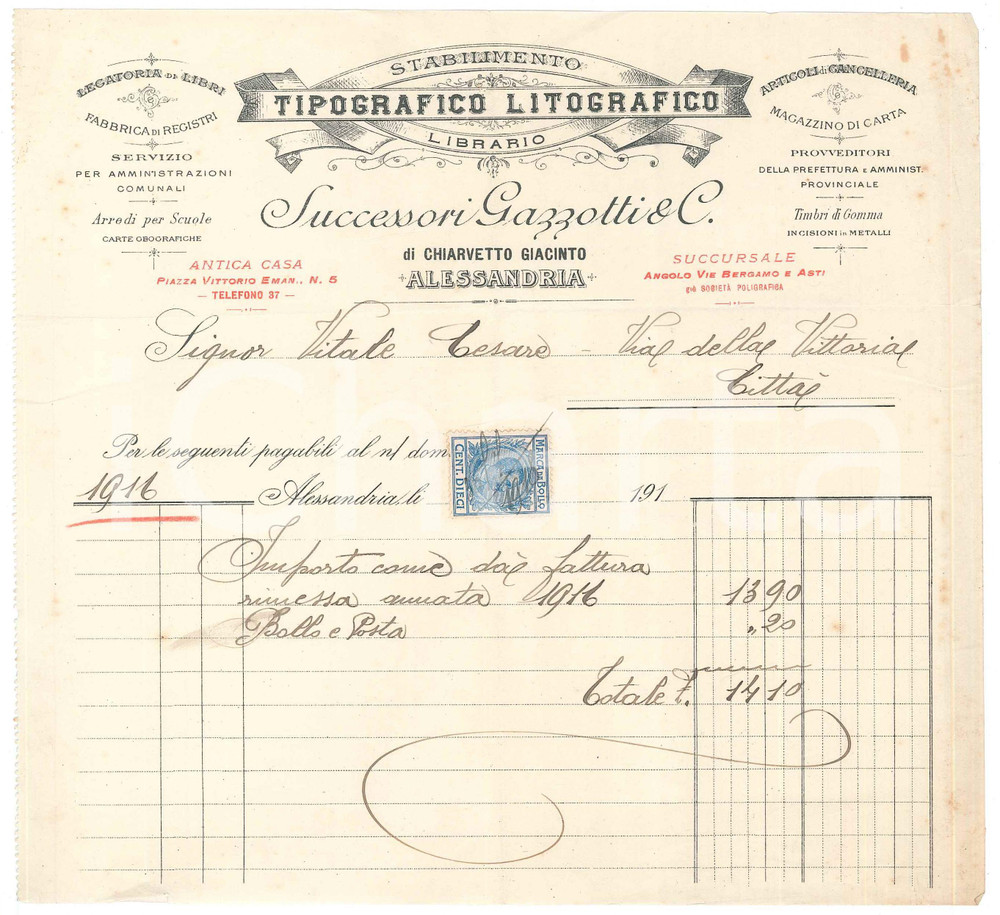 STABILIMENTO
TIPOGRAFICO LITOGRAFICO
LIBRARIO
LEGATORIA DI LIBRI
FABBRICA DI REGISTRI
SERVIZIO
PER AMMINISTRAZIONI
COMUNALI
Arredi per Scuole
CARTE GEOGRAFICHE
ARTICOLI di CANCELLERIA
MAGAZZINO DI CARTA
PROVVEDITORI
DELLA PREFETTURA E AMMINIST.
PROVINCIALE
Timbri di Gomma
INCISIONI in METALLI
Successori Gazzotti & C.
di CHIARVETTO GIACINTO
ALESSANDRIA
ANTICA CASA
PIAZZA VITTORIO EMAN., N. 5
— TELEFONO 37 —
SUCCURSALE
ANGOLO VIE BERGAMO E ASTI
già SOCIETÀ POLIGRAFICA
Signor Vitale Cesare - Via della Vittoria
Città
Per le seguenti pagabili al n/ dom
MARCA DA BOLLO
CENT. DIECI
1916 Alessandria, li 191
Importo come da fattura
rimessa annata 1916 13 90
Bollo e Posta ,, 20
Totale £. 14 10